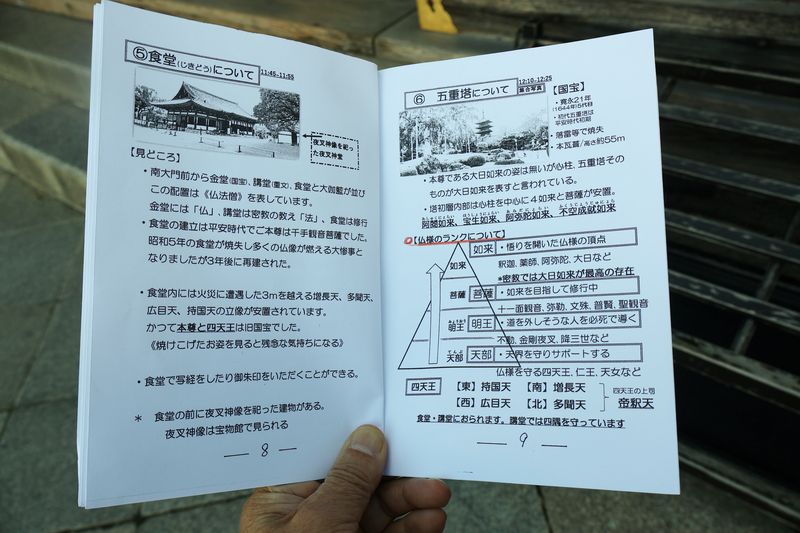 ⑤食堂(じきどう)について 11:45-11:55
夜叉神像を祀っ
た夜叉神堂
【見どころ】
・南大門前から金堂(国宝)、講堂(重文)、食堂と大伽藍が並び
この配置は《仏法僧》を表しています。
金堂には「仏」、講堂は密教の教え「法」、食堂は修行
・食堂の建立は平安時代でご本尊は千手観音菩薩でした。
昭和5年の食堂が焼失し多くの仏像が燃える大惨事と
なりましたが3年後に再建された。
・食堂内には火災に遭遇した3mを越える増長天、多聞天、
広目天、持国天の立像が安置されています。
かつて本尊と四天王は旧国宝でした。
《焼けこげたお姿を見ると残念な気持ちになる》
・食堂で写経をしたり御朱印をいただくことができる。
* 食堂の前に夜叉神像を祀った建物がある。
夜叉神像は宝物館で見られる
― 8 ―
⑥ 五重塔について 12:10-12:25
集合写真
【国宝】
・寛永21年
(1644年)5代目
・初代五重塔は
平安時代初期
・落雷等で焼失
・本瓦葺/高さ約55m
・本尊である大日如来の姿は無いが心柱、五重塔その
ものが大日如来を表すと言われている。
・塔初層内部は心柱を中心に4如来と菩薩が安置。
阿閦如来、宝生如来、阿弥陀如来、不空成就如来
【仏様のランクについて】
如来 如来 ・悟りを開いた仏様の頂点
釈迦、薬師、阿弥陀、大日など
*密教では大日如来が最高の存在
菩薩 菩薩 ・如来を目指して修行中
十一面観音、弥勒、文殊、普賢、聖観音
明王 明王 ・道を外しそうな人を必死で導く
不動、金剛夜叉、降三世など
天部 天部 ・天界を守りサポートする
仏様を守る四天王、仁王、天女など
四天王 【東】持国天 【南】増長天 四天王の上司
【西】広目天 【北】多聞天 帝釈天
食堂・講堂におられます。講堂では四隅を守っています
― 9 ―